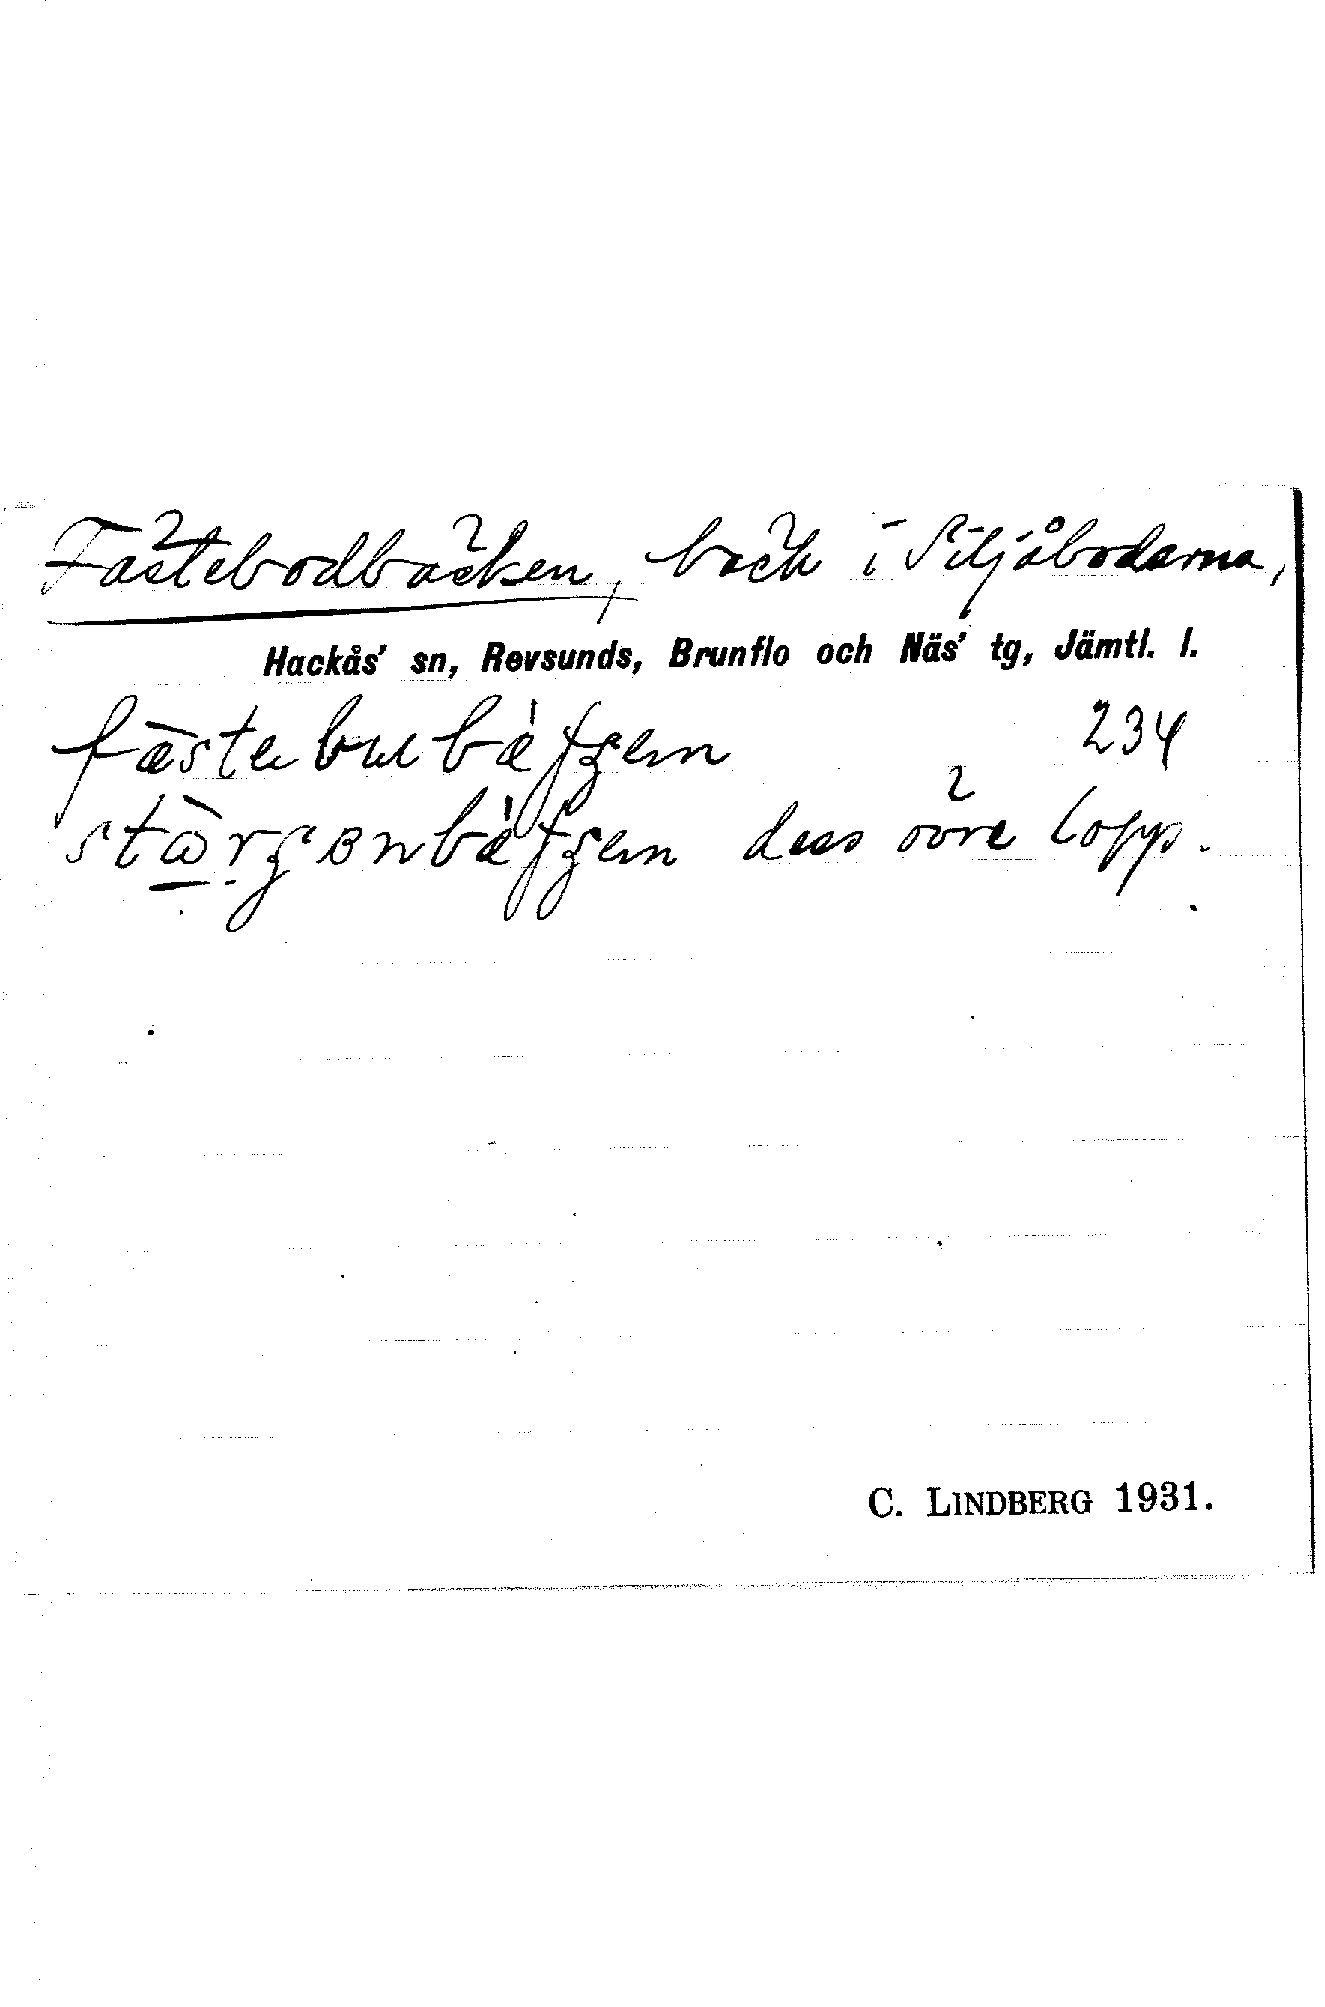 Fästebodbäcken, bäck i Siljåbodarna,
Hackås' sn, Revsunds, Brunflo och Näs' tg, Jämtl. l.
234
dess övre lopp.
C. LINDBERG 1931.